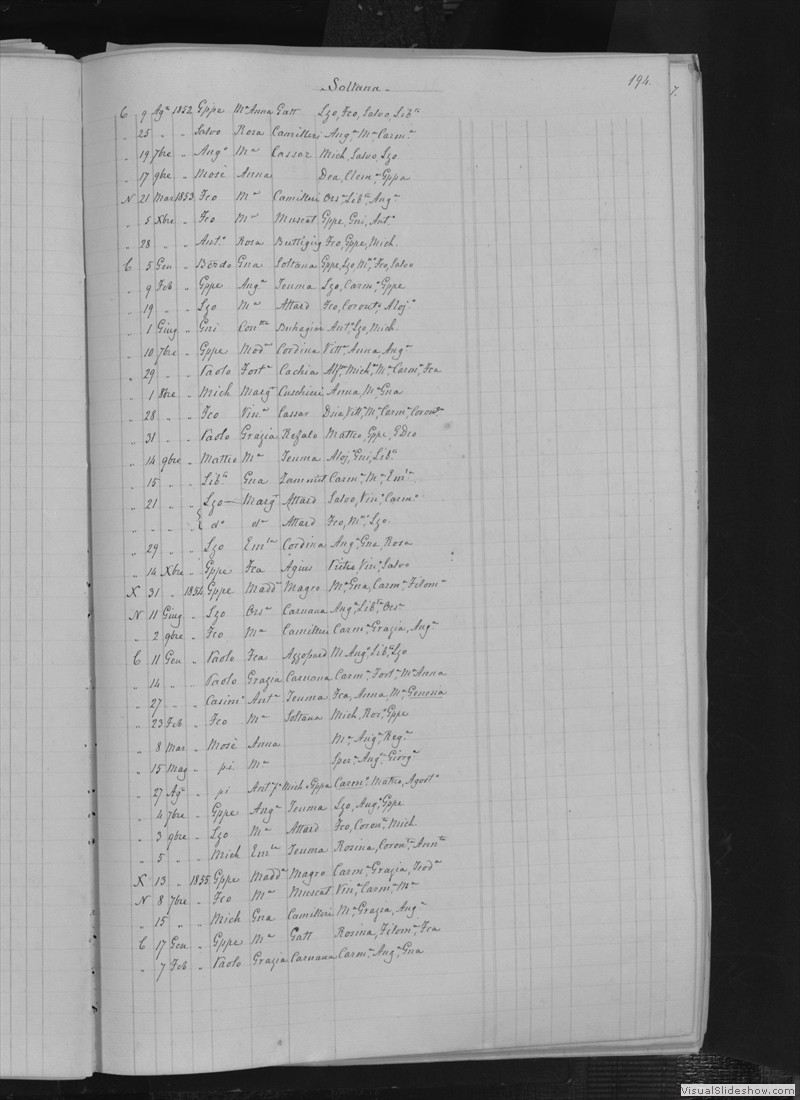 Soltana 194.
7.
C 9 Agº 1852 Gppe Mª Anna Gatt Lzo, Fco, Salvo, Libª
" 25 " " Salvo Rosa Camilleri Angª Mª Carmª
" 19 7bre " Angº Mª Cassar Mich, Salvo, Lzo
" 17 9bre " Mosè Anna Dea, Clemª Gppa
N 21 Mar 1853 Fco Mª Camilleri Orsª Libª, Angª
" 5 Xbre " Fco Mª Muscat Gppe, Gni, Antº
" 28 " " Antº Rosa Buttigieg Fco, Gppe, Mich.
C 5 Gen " Berdo Gna Soltana Gppe, Lzo, Mª, Fco, Salvo
" 9 Feb " Gppe Angª Teuma Lzo, Carmª Gppe
" 19 " " Lzo Mª Attard Fco, Coronª, Alojº
" 1 Giug " Gni Conᵗᵗᵃ Buhagiar Antº Lzo, Mich.
" 10 7bre " Gppe Madª Cordina Vittª, Anna, Angª
" 29 " " Paolo Fortª Cachia Alfº, Michª, Mª Carmª, Fca
" 1 8bre " Mich Margª Cuschieri Anna, Mª Gna
" 28 " " Fco Vinª Cassar Vittª, Mª Carmª, Coronª
" 31 " " Paolo Grazia Refalo Matteo, Gppe,
" 14 9bre " Matteo Mª Teuma Alojº, Gni, Libª
" 15 " " Libº Gna Zammit Carmª, Mª, Emᵗᵃ
" 21 " " Lzo Margª Attard Salvo, Vinº Carmº
" " " " { dº dª Attard Fco, Mª, Lzo.
" 29 " " Lzo Emᵗᵃ Cordina Angª, Gna, Rosa
" 14 Xbre " Gppe Fca Agius Pietro, Vinº, Salvo
X 31 " 1854 Gppe Maddª Magro Mª, Gna, Carmª, Filomª
N 11 Giug " Lzo Orsª Caruana Angª, Libª, Orsª
" 2 9bre " Fco Mª Camilleri Carmª, Grazia, Angª
C 11 Gen " Paolo Fca Azzopard M Angº, Libº, Lzo
" 14 " " Paolo Grazia Caruana Carmª, Fortª Mª Anna
" 27 " " Casimº Antª Teuma Fca, Anna, Mª Genoria
" 23 Feb " Fco Mª Soltana Mich, Rosª, Gppe
" 8 Mar " Mosè Anna Mª, Angª, Regª
" 15 Mag " pi Mª Sperª, Angª, Giorgª
" 27 Agº " pi Antª pº Mich Gppa Carmª, Matteo, Agostº
" 4 7bre " Gppe Angª Teuma Lzo, Angª, Gppe
" 3 9bre " Lzo Mª Attard Fco, Coronª, Mich.
" 5 " " Mich Emᵗᵃ Teuma Rosina, Coronª, Annᵗᵃ
X 13 " 1855 Gppe Maddª Magro Carmª, Grazia,
N 8 7bre " Fco Mª Muscat Vinª, Carmª, Mª
" 15 " " Mich Gna Camilleri Mª Grazia, Angª
C 17 Gen " Gppe Mª Gatt Rosina, Filomª, Fca
" 7 Feb " Paolo Grazia Caruana Carmª, Angª, Gna
VisualSlideshow.com